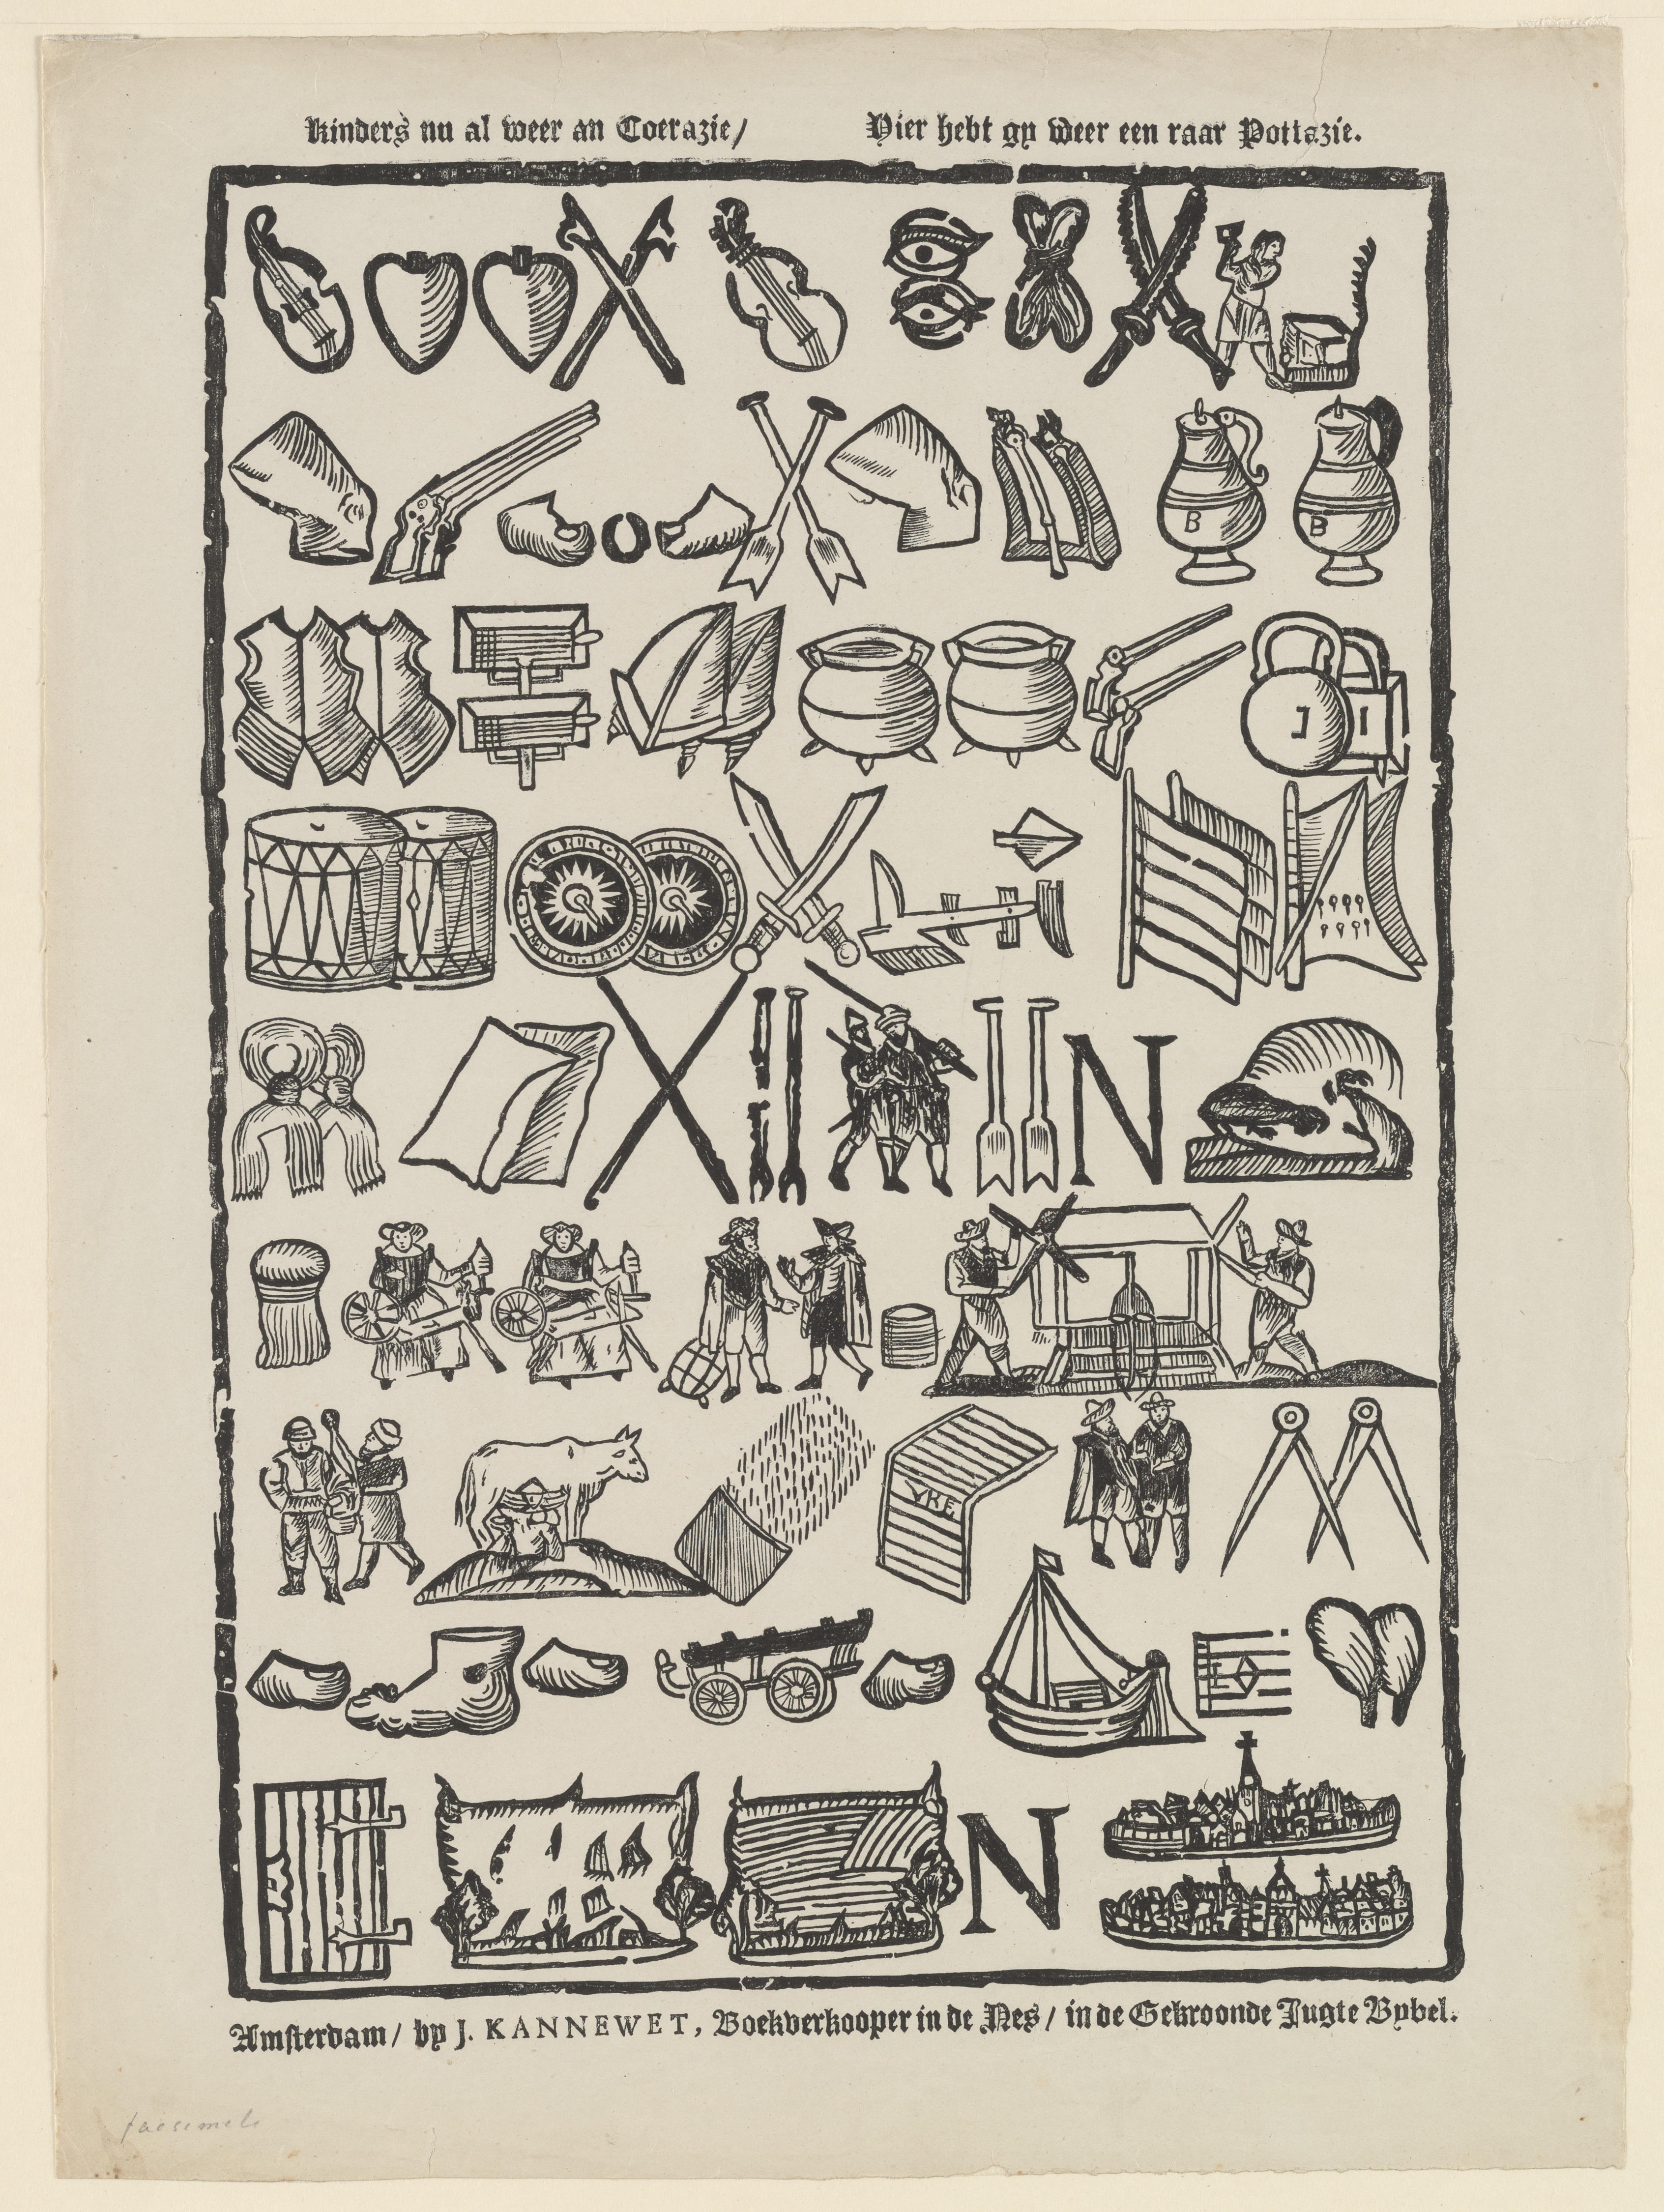 Kinders nu al weer an Coerazie/ Hier hebt gy weer een raar Pottazie.
B B
J I
N
VRE
N
Amsterdam/ by J. KANNEWET, Boekverkooper in de Nes/ in de Gekroonde Jugte Bybel.
facsimele